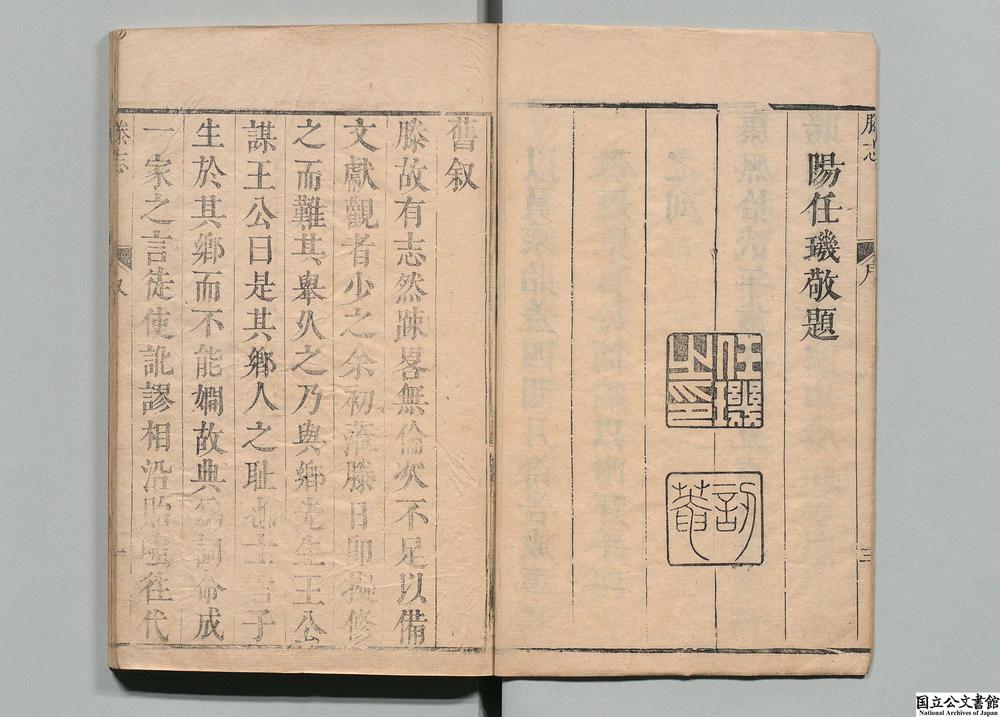 滕志
序
三
陽任璣敬題
任璣之印
舊叙
滕故有志然疎畧無倫次不足以備
文獻觀者少之余初蒞滕日卽擬修
之而難其舉久之乃與鄉先生王公
謀王公曰是其鄉人之耻也士君子
生於其鄉而不能嫺故典爲詞命成
一家之言徒使訛謬相沿貽嗤往代
滕志
叙
一
国立公文書館
National Archives of Japan